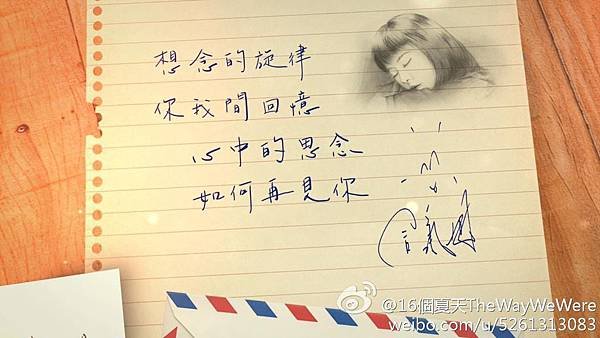 想念的旋律
你我間回憶
心中的思念
如何再見你
@16個夏天TheWayWeWere
weibo.com/u/5261313083